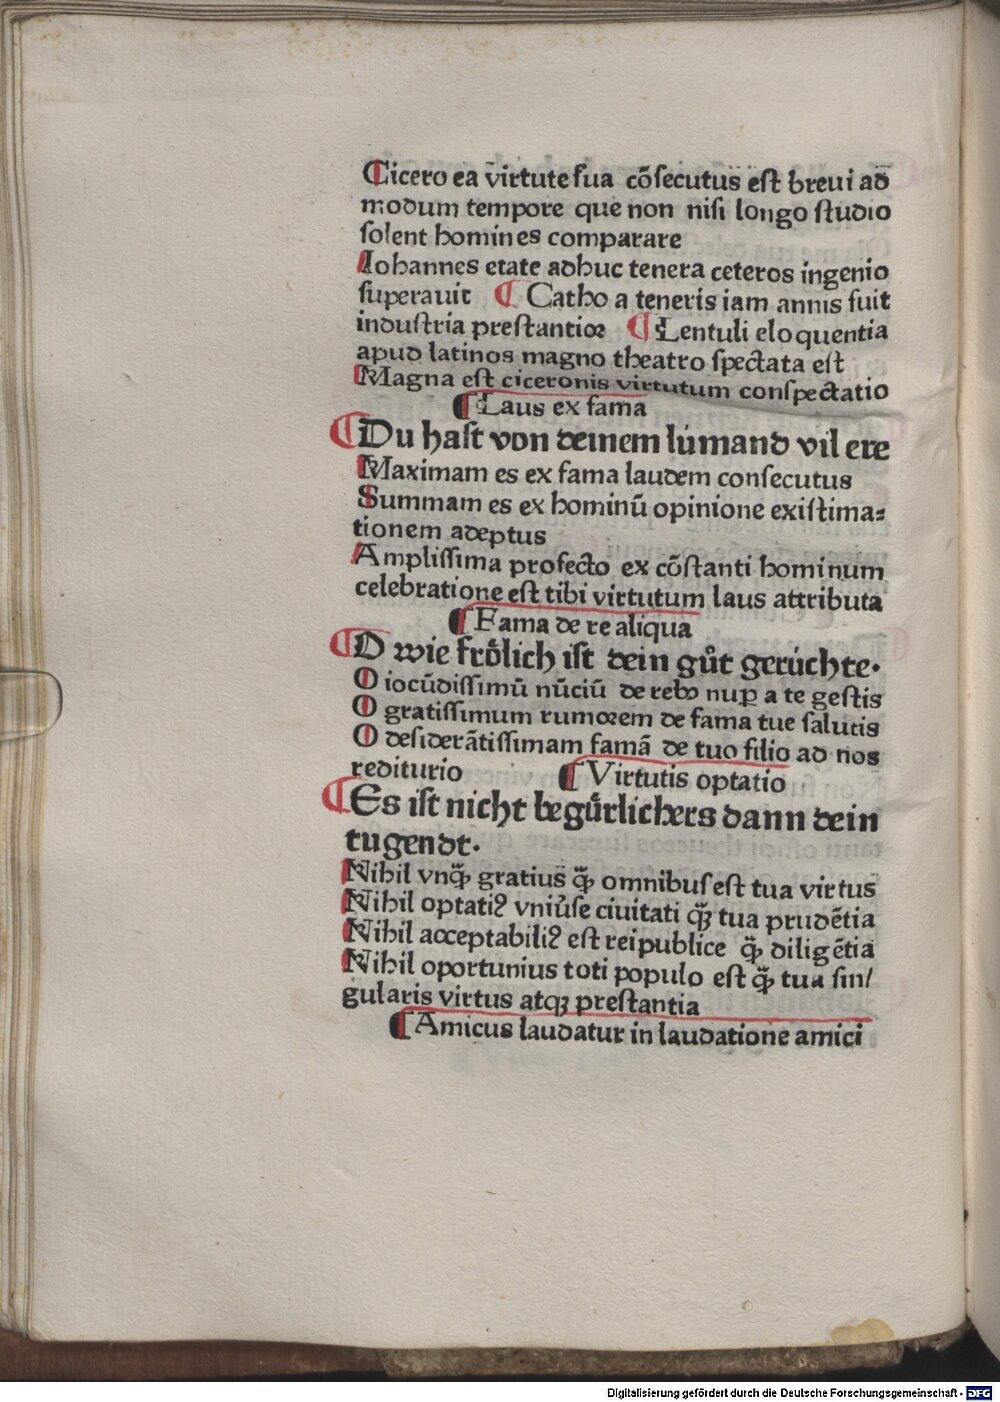 Cicero ea virtute sua cōsecutus est breui ad
modum tempore que non nisi longo studio
solent homines comparare
Iohannes etate adhuc tenera ceteros ingenio
superauit ¶ Catho a teneris iam annis fuit
industria prestantior ¶ Lentuli eloquentia
apud latinos magno theatro spectata est
Magna est ciceronis virtutum conspectatio
¶ Laus ex fama
¶ Du hast von deinem lúmand vil ere
Maximam es ex fama laudem consecutus
Summam es ex hominū opinione existima⸗
tionem adeptus
Amplissima profecto ex cōstanti hominum
celebratione est tibi virtutum laus attributa
¶ Fama de re aliqua
¶ O wie frőlich ist dein gůt gerúchte.
O iocūdissimū nūciū de rebꝰ nuꝑ a te gestis
O gratissimum rumorem de fama tue salutis
O desiderātissimam famā de tuo filio ad nos
rediturio ¶ Virtutis optatio
¶ Es ist nicht begűrlichers dann dein
tugendt.
Nihil vnq̄ȝ gratius q̄ȝ omnibus est tua virtus
Nihil optatiꝰ vniúse ciuitati q̄ȝ tua prudētia
Nihil acceptabiliꝰ est reipublice q̄ȝ diligētia
Nihil oportunius toti populo est q̄ȝ tua sin/
gularis virtus atqȝ prestantia
¶ Amicus laudatur in laudatione amici
Digitalisierung gefördert durch die Deutsche Forschungsgemeinschaft - DFG